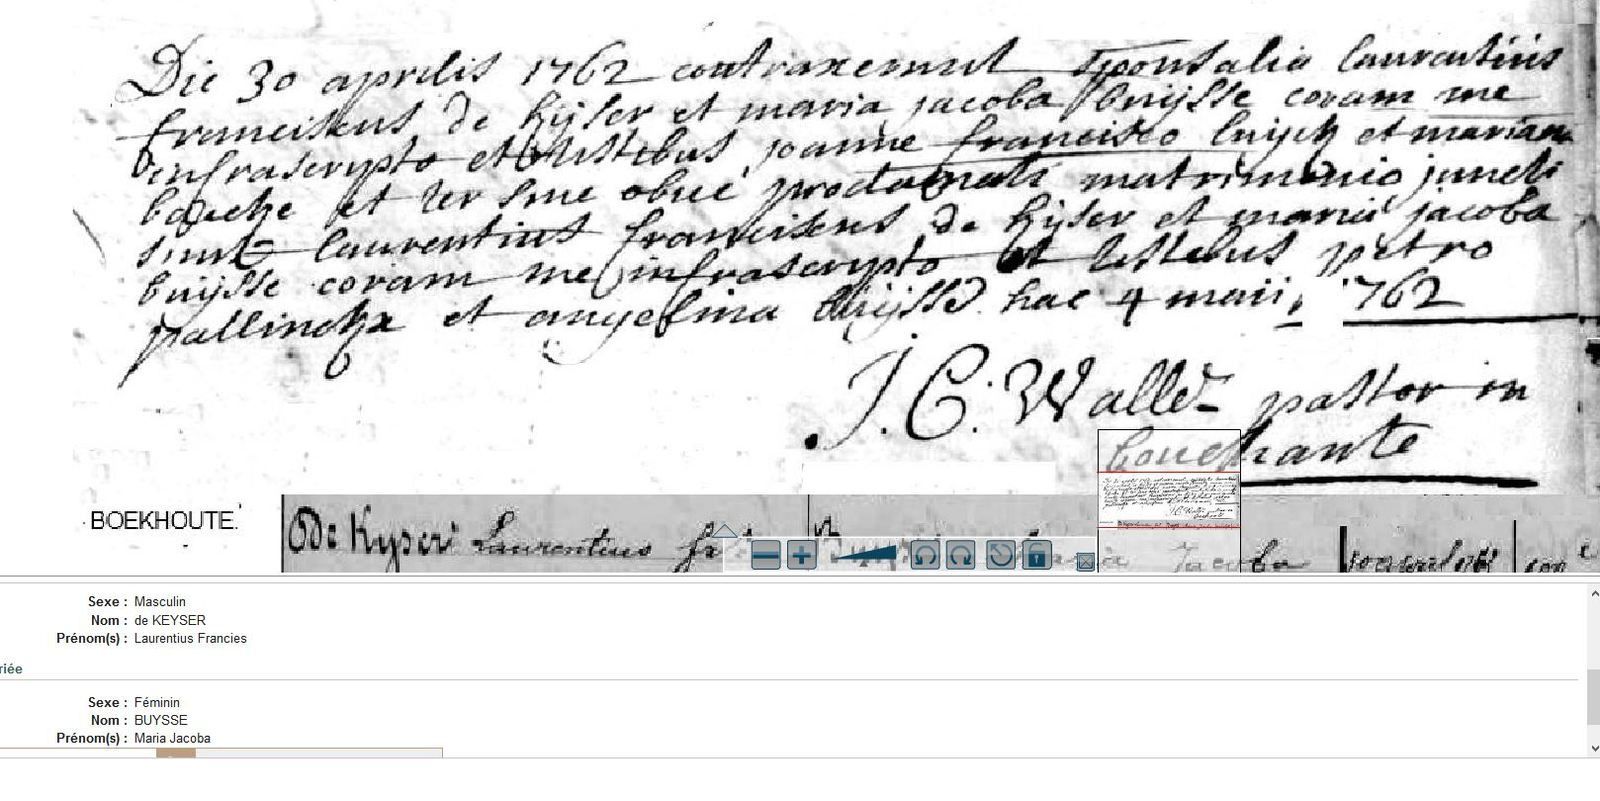 Die 30 aprilis 1762 contraxerunt sponsalia laurentius
franciskus de kijser et maria jacoba buijsse coram me
infrascrypto et testibus joanne francisco luijck et mariam
et ter sme obue proclamati matrimonio juncti
sunt laurentius franciskus de kijser et maria jacoba
buijsse coram me infrascrypto et testibus petro
pallinckx et angelina buijsse hac 4 maii, 1762
J. C. Walle pastor in
bouchaute
BOEKHOUTE.
De Kyser Laurentius fr Jacoba
Sexe : Masculin
Nom : de KEYSER
Prénom(s) : Laurentius Francies
riée
Sexe : Féminin
Nom : BUYSSE
Prénom(s) : Maria Jacoba